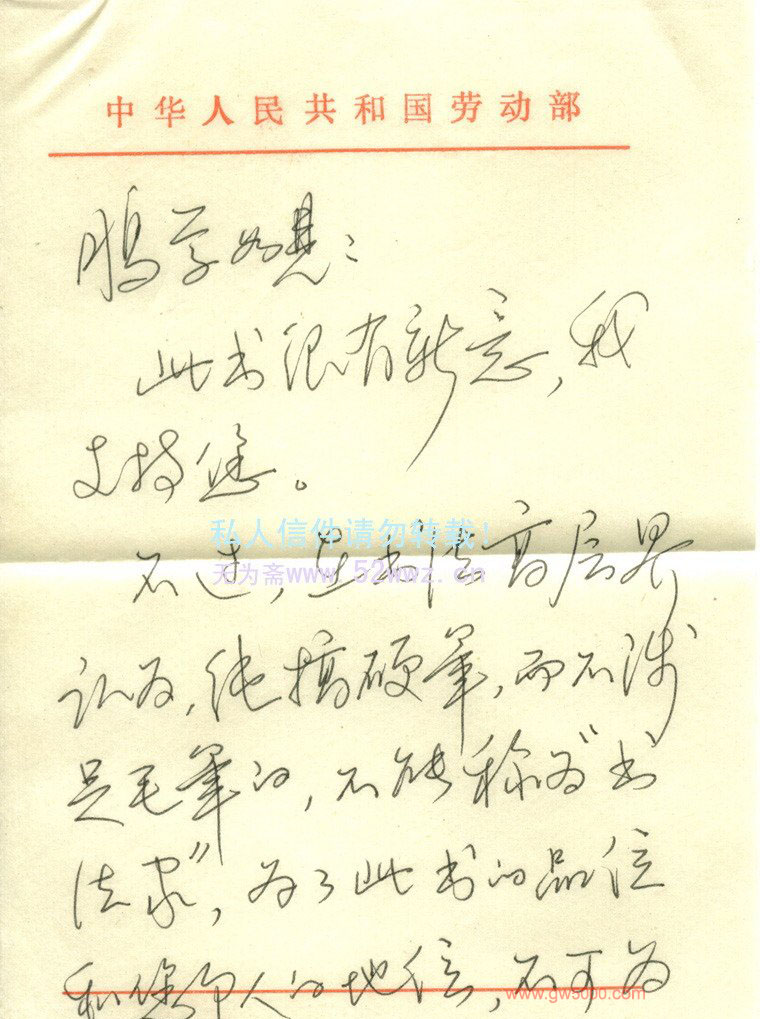 中华人民共和国劳动部
鹏学如晤：
此书很有新意，我
支持您。
私人信件请勿转载！
不过，在书法高层界
天为斋www.52wwz.cn
认为，纯搞硬笔，而不涉
足毛笔的，不能称为“书
法家”，为了此书的品位
和您本人的地位，不可为
www.gw5000.com